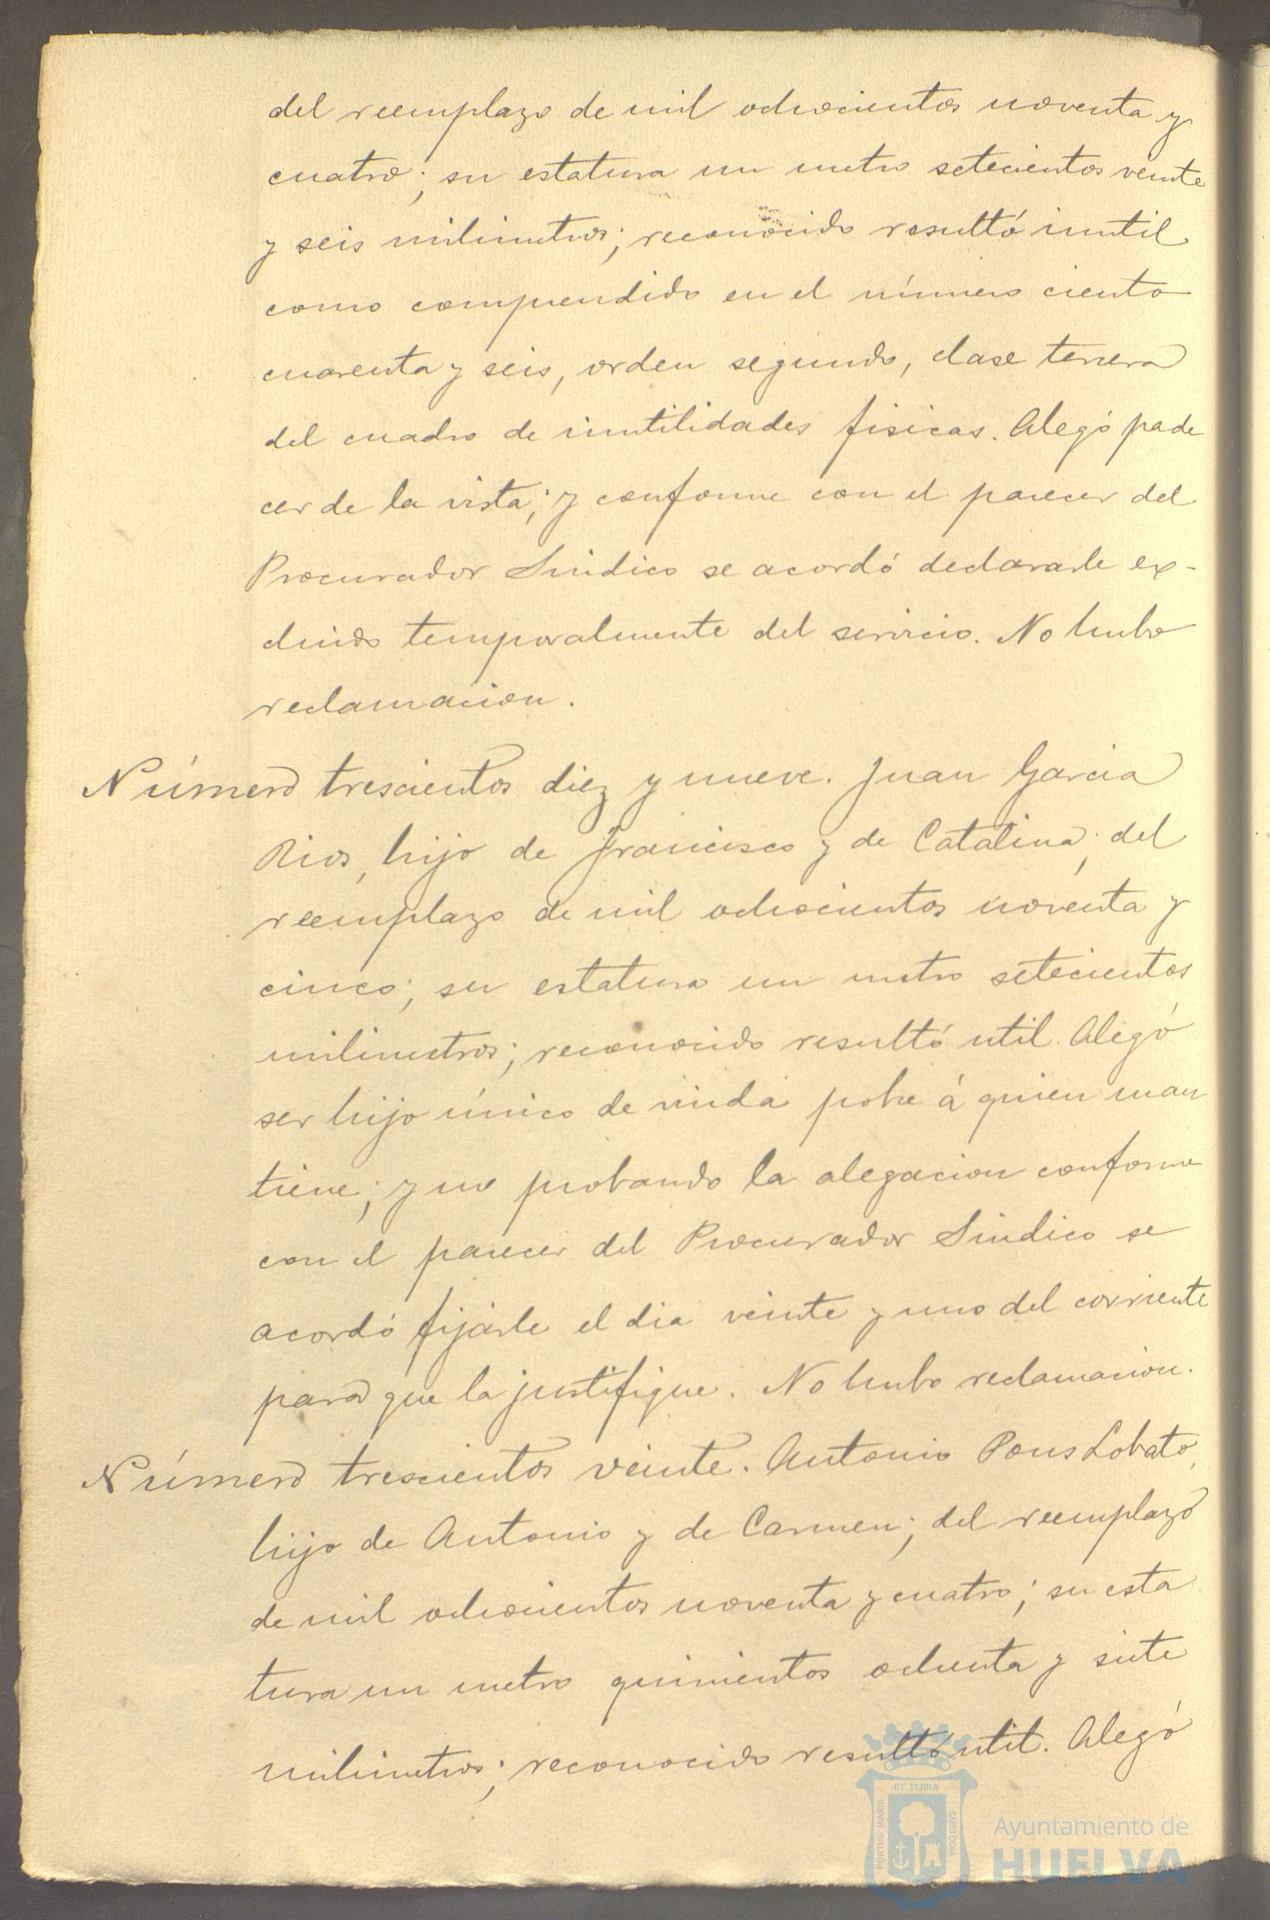 del reemplazo de mil ochocientos noventa y
cuatro; su estatura un metro setecientos veinte
y seis milimetros; reconocido resultó inutil
como comprendido en el número ciento
cuarenta y seis, orden segundo, clase tercera
del cuadro de inutilidades fisicas. Alegó pade
cer de la vista; y conforme con el parecer del
Procurador Sindico se acordó declararle ex-
cluido temporalmente del servicio. No hubo
reclamacion.
Número trescientos diez y nueve. Juan Garcia
Rios, hijo de Francisco y de Catalina; del
reemplazo de mil ochocientos noventa y
cinco; su estatura un metro setecientos
milimetros; reconocido resultó util. Alegó
ser hijo único de viuda pobre á quien man
tiene; y no probando la alegacion conforme
con el parecer del Procurador Sindico se
acordó fijarle el dia veinte y uno del corriente
para que la justifique. No hubo reclamacion.
Número trescientos veinte. Antonio Pons Lobato,
hijo de Antonio y de Carmen; del reemplazo
de mil ochocientos noventa y cuatro; su esta
tura un metro quinientos ochenta y siete
milimetros; reconocido resultó util. Alegó
ET TERRÆ
PORTUS MARIS
CUSTODIA
Ayuntamiento de
HUELVA